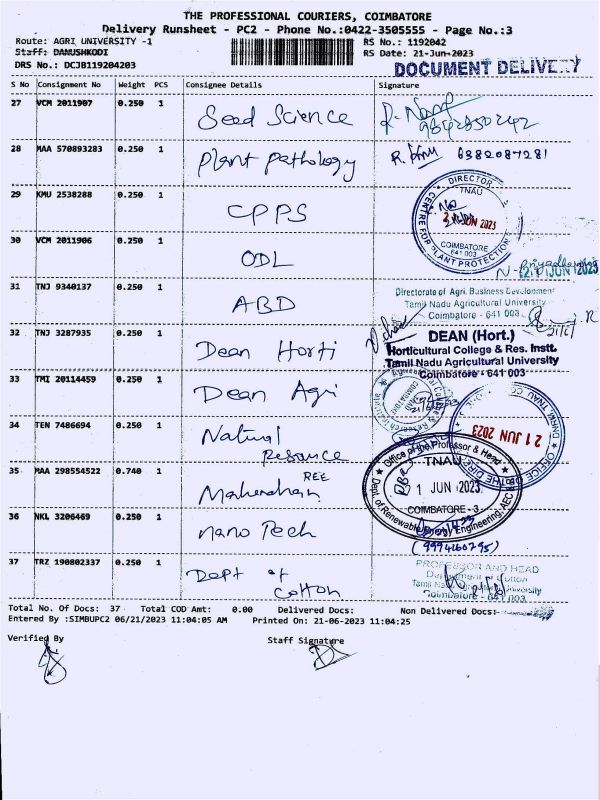 THE PROFESSIONAL COURIERS, COIMBATORE
Delivery Runsheet - PC2 - Phone No.:0422-3505555 - Page No.:3
Route: AGRI UNIVERSITY -1
RS No.: 1192042
Staff: DANUSHKODI
RS Date: 21-Jun-2023
DRS No.: DCJB119204203
DOCUMENT DELIVERY
S No Consignment No Weight PCS Consignee Details Signature
27 VCM 2011907 0.250 1 Seed Science
9842850242
28 MAA 570893283 0.250 1 Plant Pathology
6382087281
29 KMU 2538288 0.250 1 CPPS
DIRECTOR
TNAU
CENTRE FOR PLANT PROTECTION
JUN 2023
COIMBATORE
641 003
30 VCM 2011906 0.250 1 ODL
21 JUN 2023
31 TNJ 9340137 0.250 1 ABD
Directorate of Agri. Business Development
Tamil Nadu Agricultural University
Coimbatore - 641 003.
32 TNJ 3287935 0.250 1 Dean Horti
DEAN (Hort.)
Horticultural College & Res. Instt.
Tamil Nadu Agricultural University
Coimbatore - 641 003
33 TMI 20114459 0.250 1 Dean Agri
34 TEN 7486694 0.250 1 Natural
Resource
21 JUN 2023
35 MAA 298554522 0.740 1 REE
Mahendran
Office of the Professor & Head
TNAU
JUN 2023
COIMBATORE - 3
Dept. of Renewable Energy Engineering, AEC
36 NKL 3206469 0.250 1 Nano Tech
(9994160795)
37 TRZ 190802337 0.250 1 Dept of
Cotton
PROFESSOR AND HEAD
Department of Cotton
Tamil Nadu Agricultural University
Coimbatore - 641 003
Total No. Of Docs: 37 Total COD Amt: 0.00 Delivered Docs: Non Delivered Docs:
Entered By :SIMBUPC2 06/21/2023 11:04:05 AM Printed On: 21-06-2023 11:04:25
Verified By Staff Signature